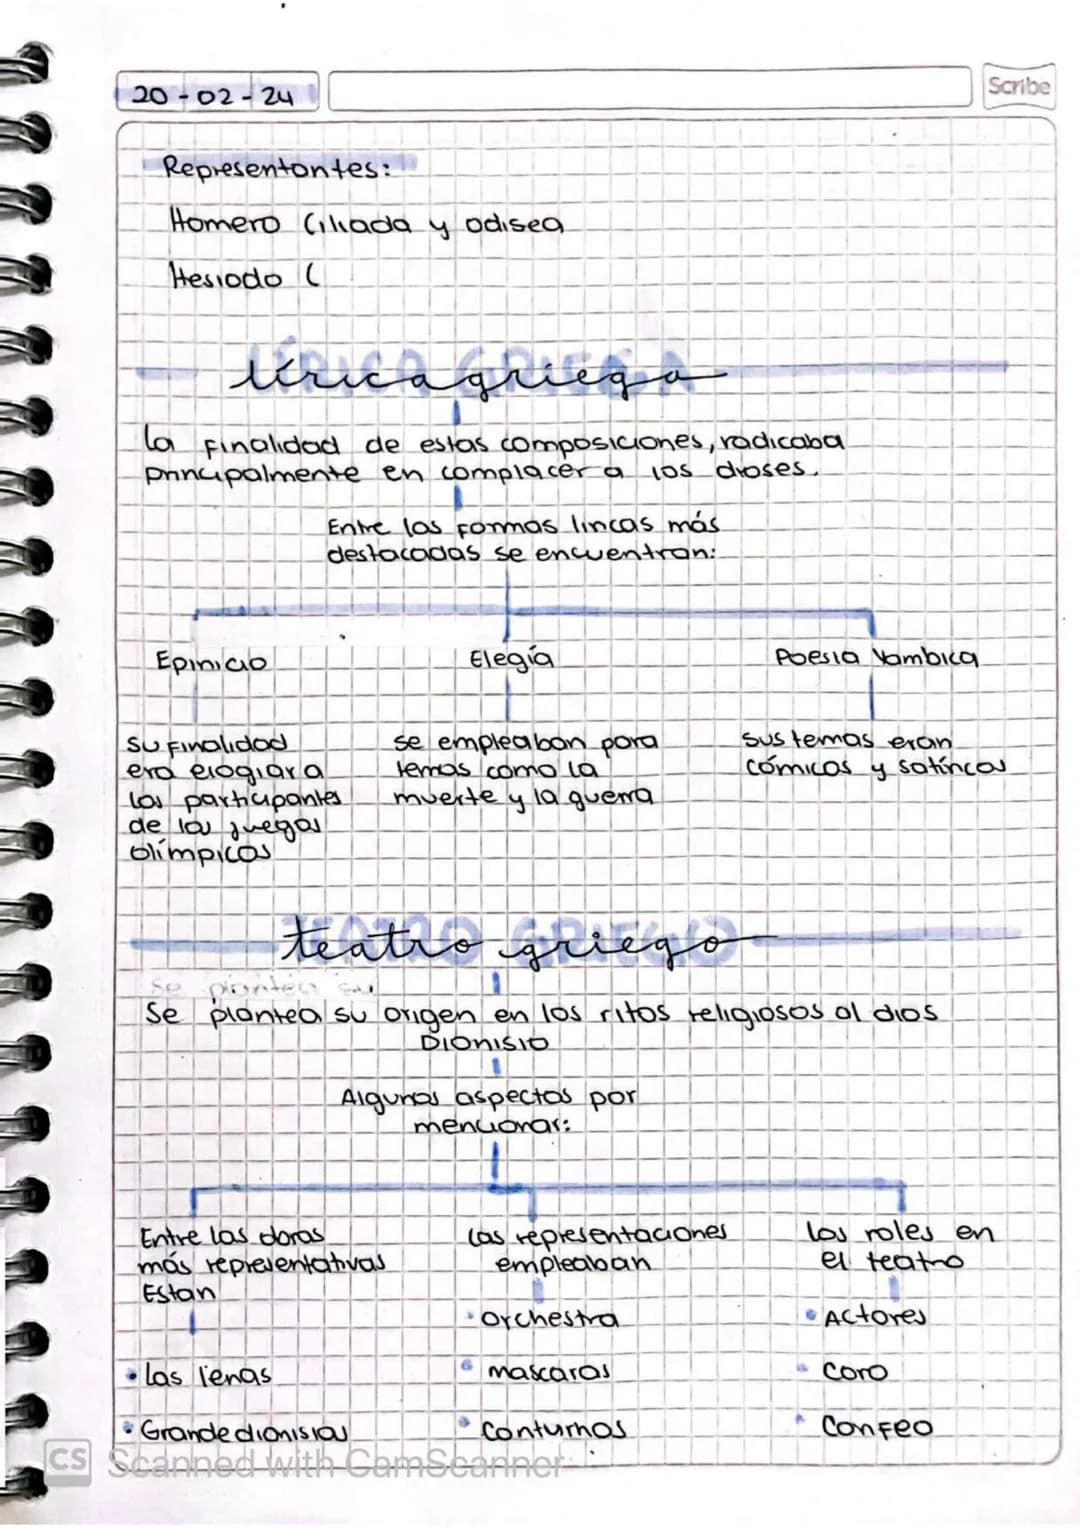 20-02-24
Scribe
Representantes:
Homero (iliada y odisea
Hesiodo (
LÍRICA GRIEGA
lírica griega
la finalidad de estas composiciones, radicaba
principalmente en complacer a los dioses.
Entre las formas liricas más
destacadas se encuentran:
Epinicio Elegía Poesia Yambica
su finalidad se empleaban para sus temas eran
era elogiar a temas como la cómicos y satíricos
los participantes muerte y la guerra
de los juegos
olímpicos
TEATRO GRIEGO
teatro griego
se plantea su
Se plantea su origen en los ritos religiosos al dios
Dionisio
Algunos aspectos por
mencionar:
Entre las obras Las representaciones los roles en
más representativas empleaban el teatro
Estan
• Orchestra • Actores
• las lenas • mascaras • Coro
• Grande dionisias • Conturnos • Confeo
CS Scanned with CamScanner